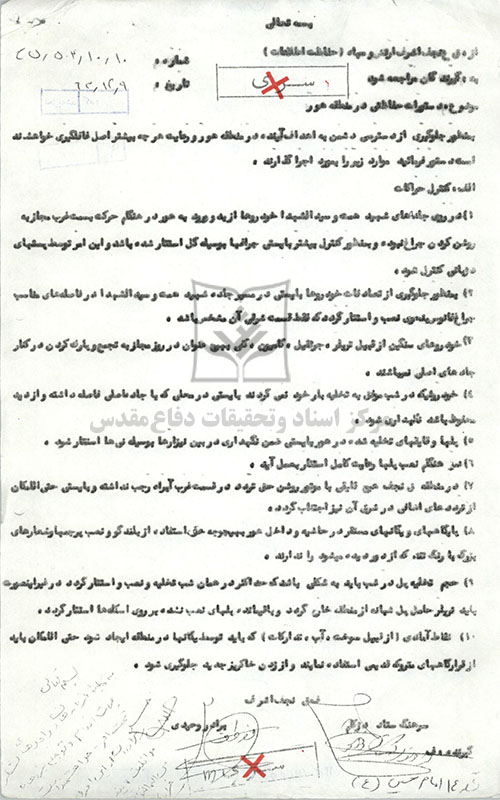 بسمه تعالی
از : ق نجف اشرف ارتش و سپاه ( حفاظت اطلاعات )
شماره :
به : گیرندگان مراجعه شود
سری
تاریخ :
موضوع : دستورات حفاظتی در منطقه هور
بمنظور جلوگیری از دسترسی دشمن به اهداف آینده در منطقه هور و رعایت هرچه بیشتر اصل غافلگیری خواهشمند
است دستور فرمائید موارد زیر را بمورد اجرا گذارند .
الف : کنترل حرکات
۱) در روی جاده‌های شهید همت و سید الشهدا خودروها از بدو ورود به هور در هنگام حرکت بسمت غرب مجاز به
روشن کردن چراغ نبوده و بمنظور کنترل بیشتر بایستی چراغها بوسیله گل استتار شده باشد و این امر توسط پستهای
دژبانی کنترل شود .
۲) بمنظور جلوگیری از تصادفات خودروها بایستی در مسیر جاده شهید همت و سید الشهدا در فاصله‌های مناسب
چراغ فانوس بنحوی نصب و استتار گردد که فقط قسمت شرقی آن مشخص باشد .
۳) خودروهای سنگین از قبیل تریلر ، جرثقیل ، کامیون ، کلی بهیچ عنوان در روز مجاز به تجمع و پارک کردن در کنار
جاده های اصلی نمیباشند .
۴) خودروئیکه در شب موفق به تخلیه بار خود نمی گردند بایستی در محلی که با جاده اصلی فاصله داشته و از دید
محفوظ باشد نگهداری شود .
۵) پلها و قایقهای تخلیه شده در هور بایستی ضمن نگهداری در بین نیزارها بوسیله نی‌ها استتار شود .
۶) در هنگام نصب پلها رعایت کامل استتار بعمل آید .
۷) در منطقه ق نجف هیچ قایقی با موتور روشن حق تردد در قسمت غرب آبراه رجب نداشته و بایستی حتی الامکان
از تردد های اضافی در شرق آن نیز اجتناب گردد .
۸) پایگاههای و یگانهای مستقر در حاشیه و داخل هور بهیچوجه حق استفاده از بلندگو و نصب پرچمها و شعارهای
بزرگ با رنگ تند که از دور دیده میشود را ندارند .
۹) حجم تخلیه پل در شب باید به شکلی باشد که حداکثر در همان شب تخلیه و نصب و استتار گردد در غیر اینصورت
باید تریلر حامل پل شبانه از منطقه خارج گردد و باقیمانده پلهای نصب نشده بر روی اسکله‌ها استتار گردد .
۱۰) نقاط آمادی ( از قبیل سوخت ، آب ، تدارکات ) که باید توسط یگانها در منطقه ایجاد شود حتی الامکان باید
از قرارگاههای متروکه قدیمی استفاده نمایند و از زدن خاکریز جدید جلوگیری شود .
ق نجف اشرف
سرهنگ ستاد
برادر وحیدی
مرکز اسناد و تحقیقات دفاع مقدس